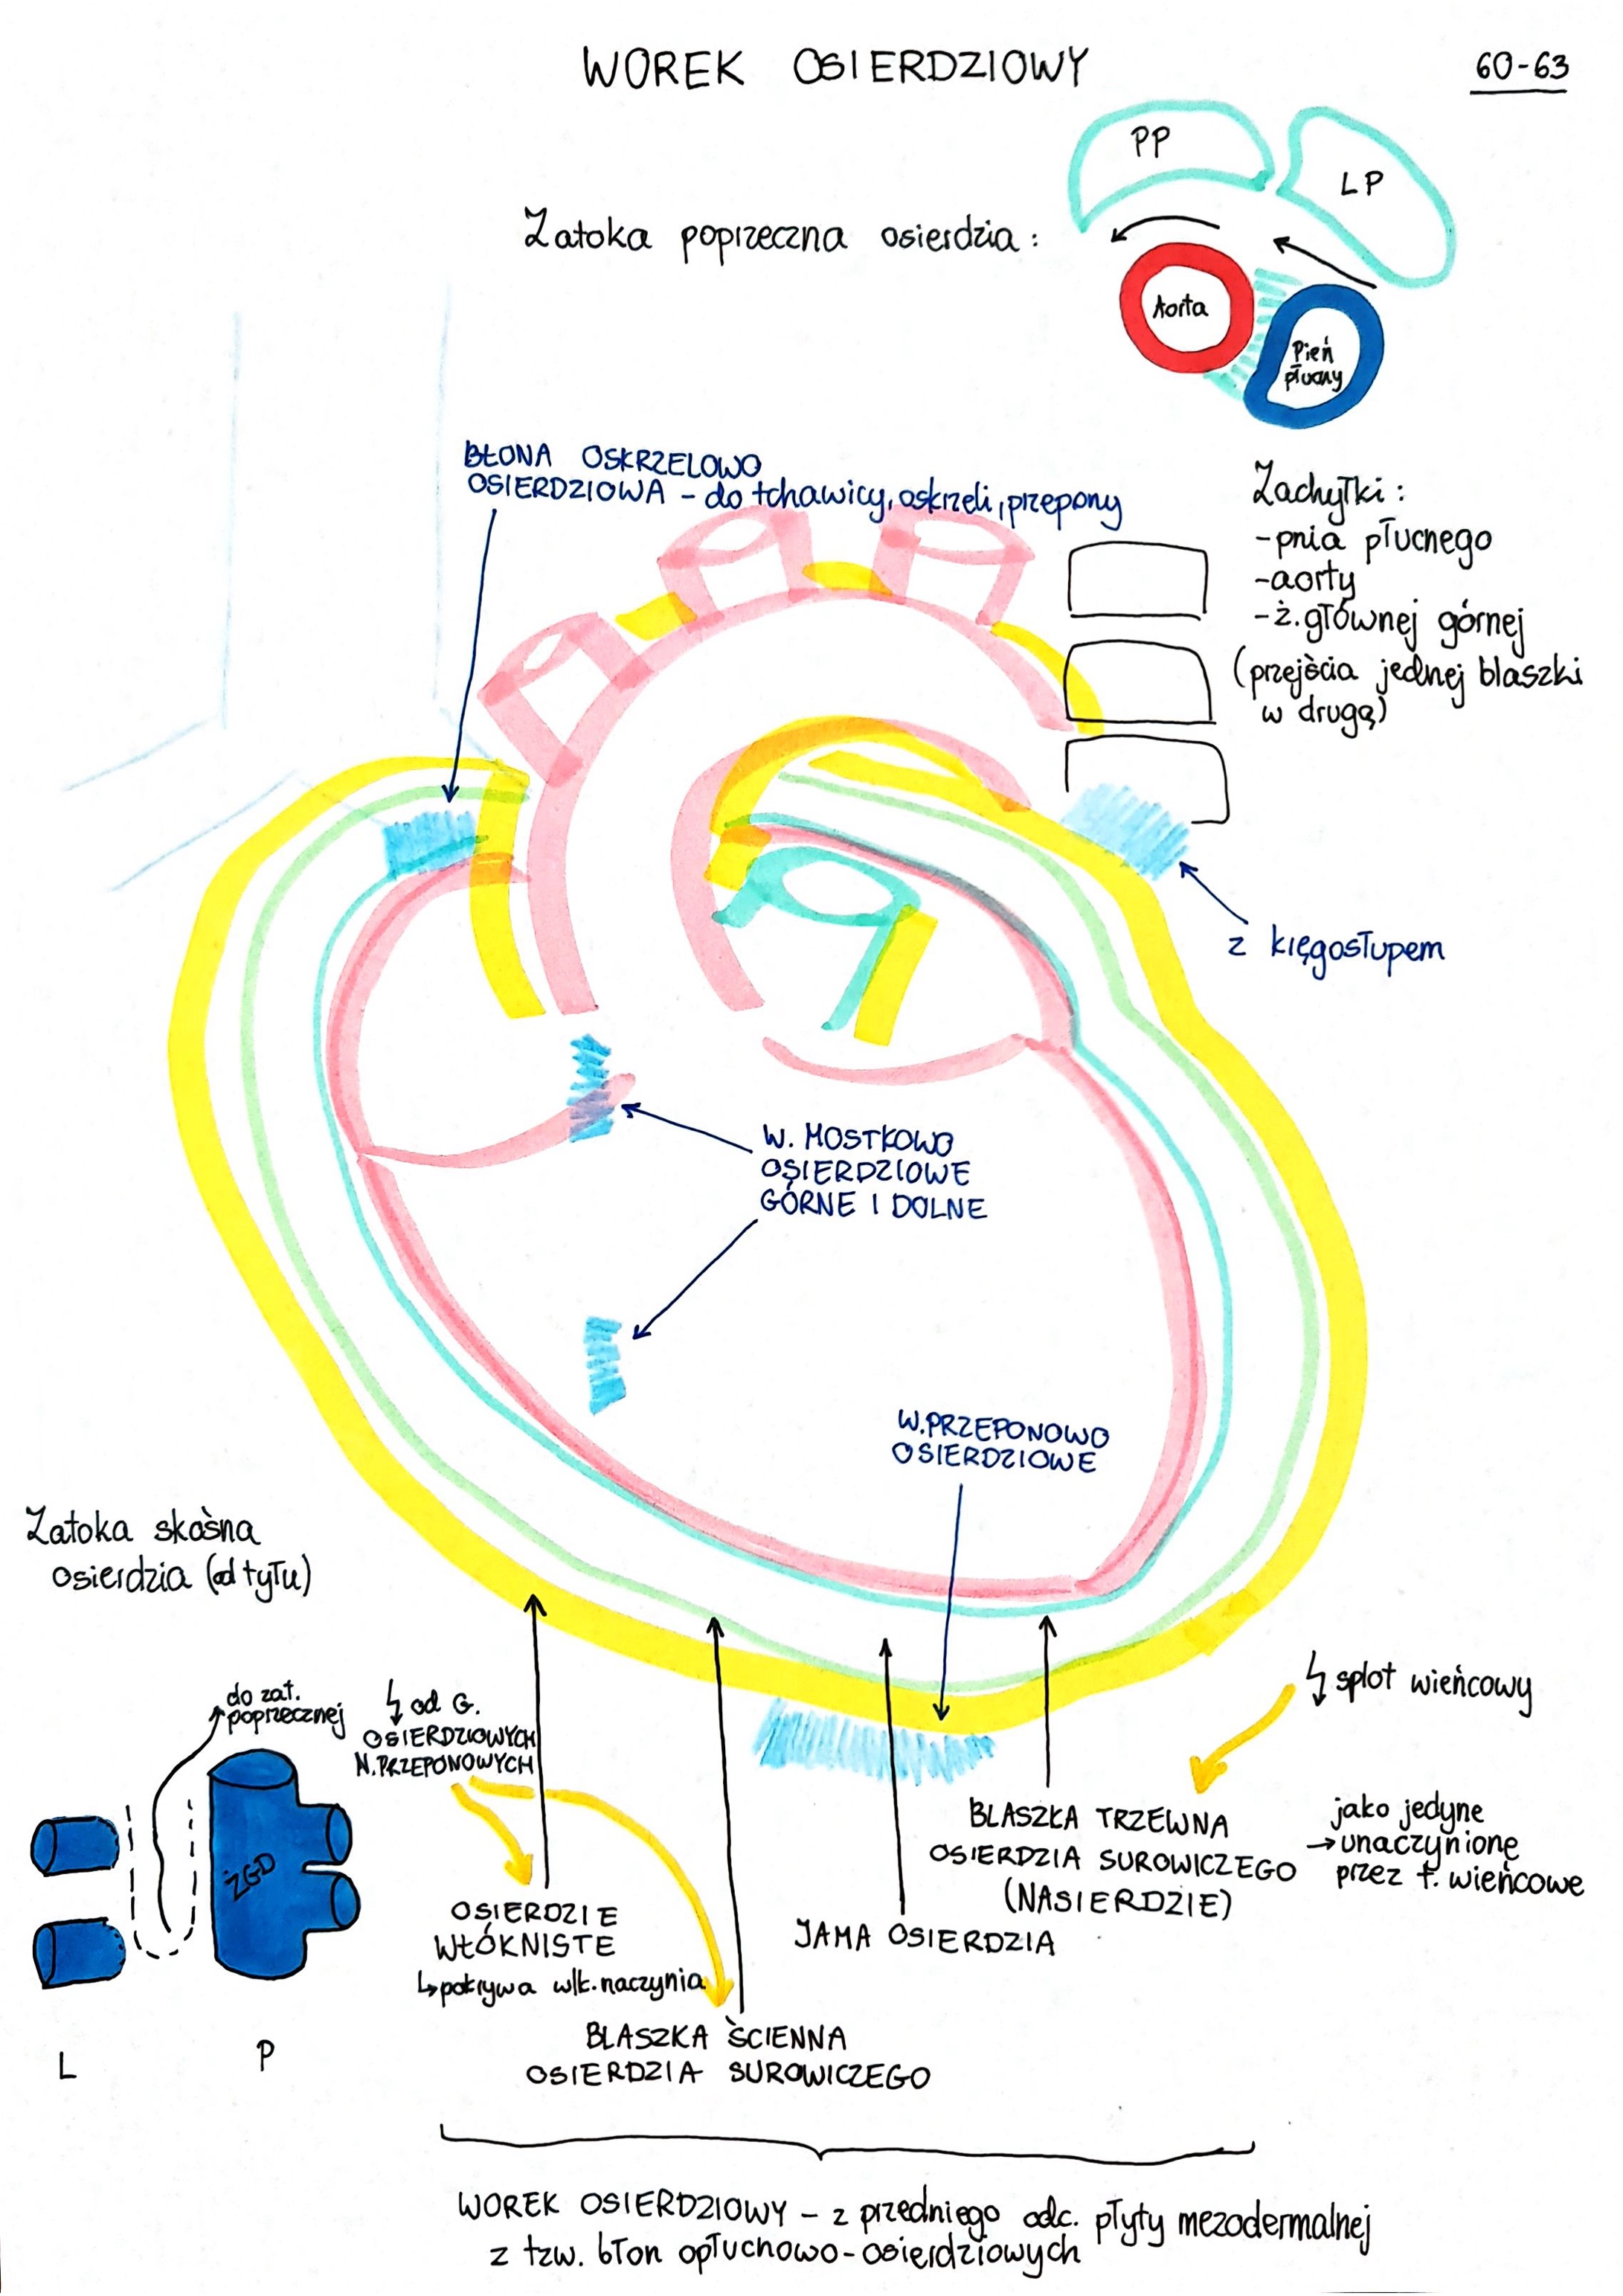 WOREK OSIERDZIOWY
60-63
PP
LP
Zatoka poprzeczna osierdzia:
Aorta
Pień
płucny
BŁONA OSKRZELOWO
OSIERDZIOWA - do tchawicy, oskrzeli, przepony
Zachyłki:
-pnia płucnego
-aorty
-ż.głównej górnej
(przejścia jednej blaszki
w drugą)
z kięgosłupem
W. MOSTKOWO
OSIERDZIOWE
GÓRNE I DOLNE
W.PRZEPONOWO
OSIERDZIOWE
Zatoka skośna
osierdzia (od tyłu)
do zat.
poprzecznej
ŻGD
L
P
↯ od G.
OSIERDZIOWYCH
N.PRZEPONOWYCH
↯ splot wieńcowy
OSIERDZIE
WŁÓKNISTE
↳pokrywa wlk.naczynia
BLASZKA ŚCIENNA
OSIERDZIA SUROWICZEGO
JAMA OSIERDZIA
BLASZKA TRZEWNA
OSIERDZIA SUROWICZEGO
(NASIERDZIE)
jako jedyne
→unaczynione
przez t. wieńcowe
WOREK OSIERDZIOWY - z przedniego odc. płyty mezodermalnej
z tzw. błon opłucnowo-osierdziowych